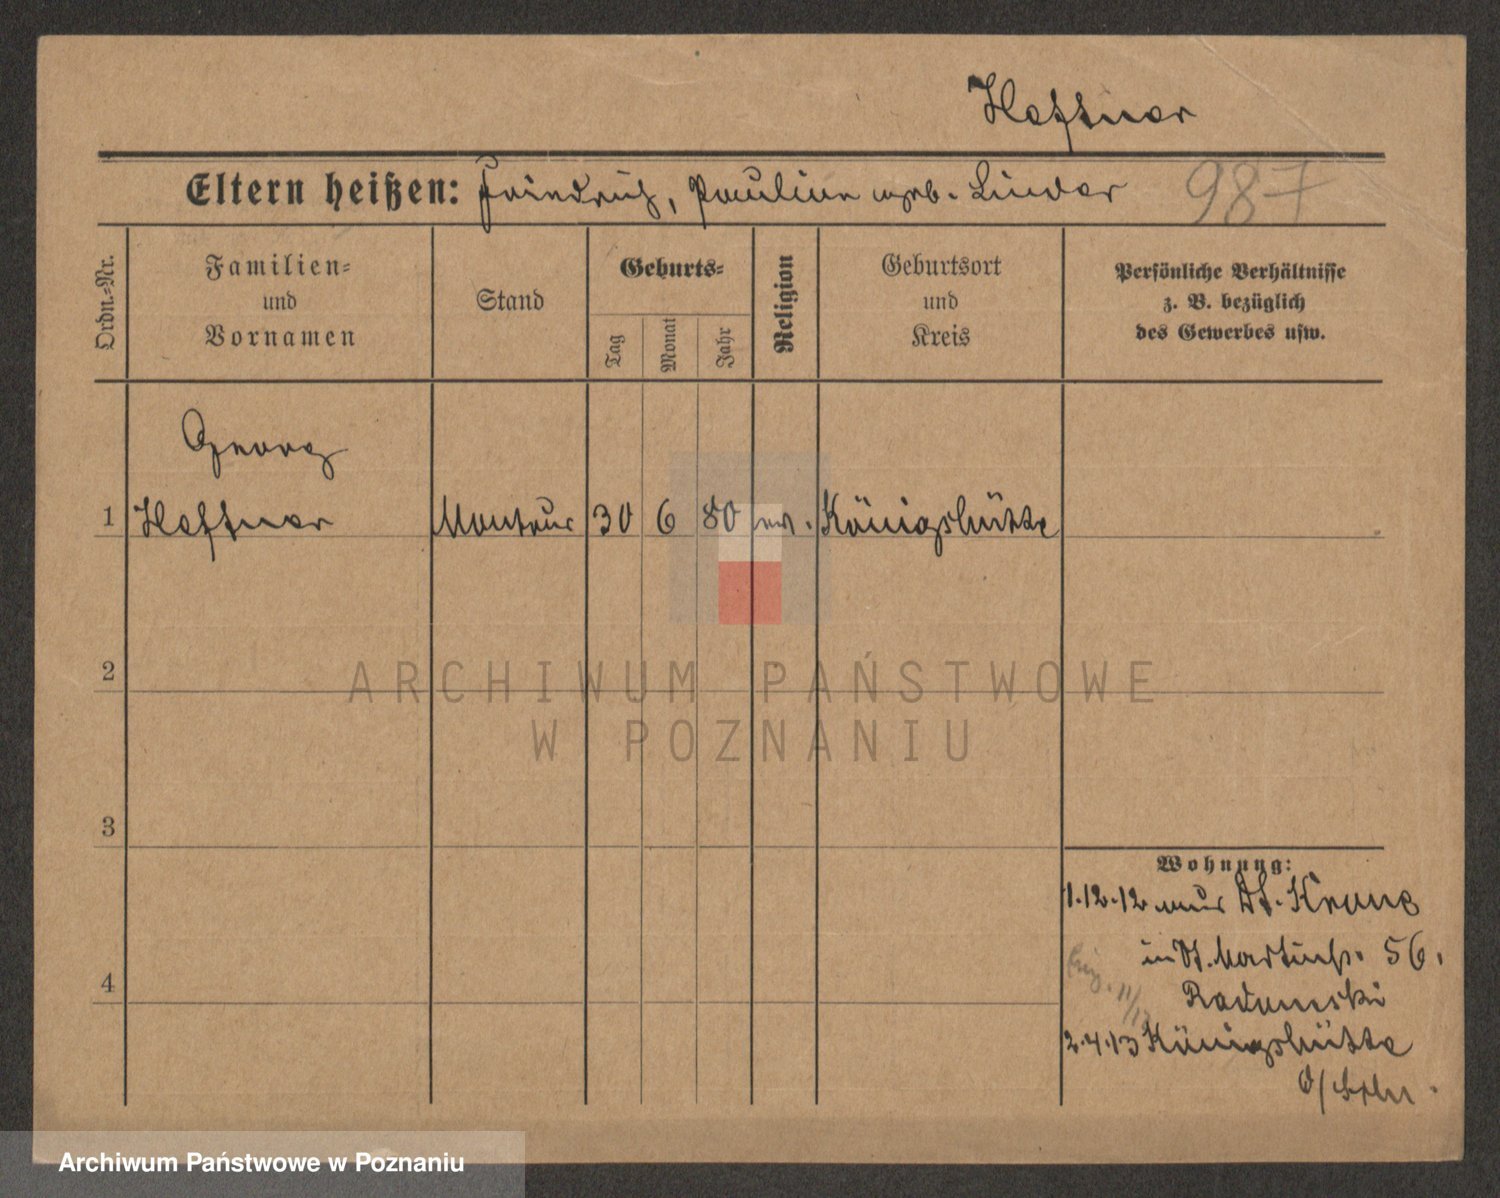 Heftner
Eltern heißen: Friedrich, Pauline geb. Linder 987
Ordn.-Nr.
Familien-
und
Vornamen
Stand
Geburts-
Tag
Monat
Jahr
Religion
Geburtsort
und
Kreis
Persönliche Verhältnisse
z. B. bezüglich
des Gewerbes usw.
Georg
1 Heftner Monteur 30 6 80 ev. Königshütte
2
3
4
Wohnung:
1.12.12 aus Dt. Krone
in St. Martinstr. 56.
2.4.13 Königshütte
O/Schl.
ARCHIWUM PAŃSTWOWE
W POZNANIU
Archiwum Państwowe w Poznaniu